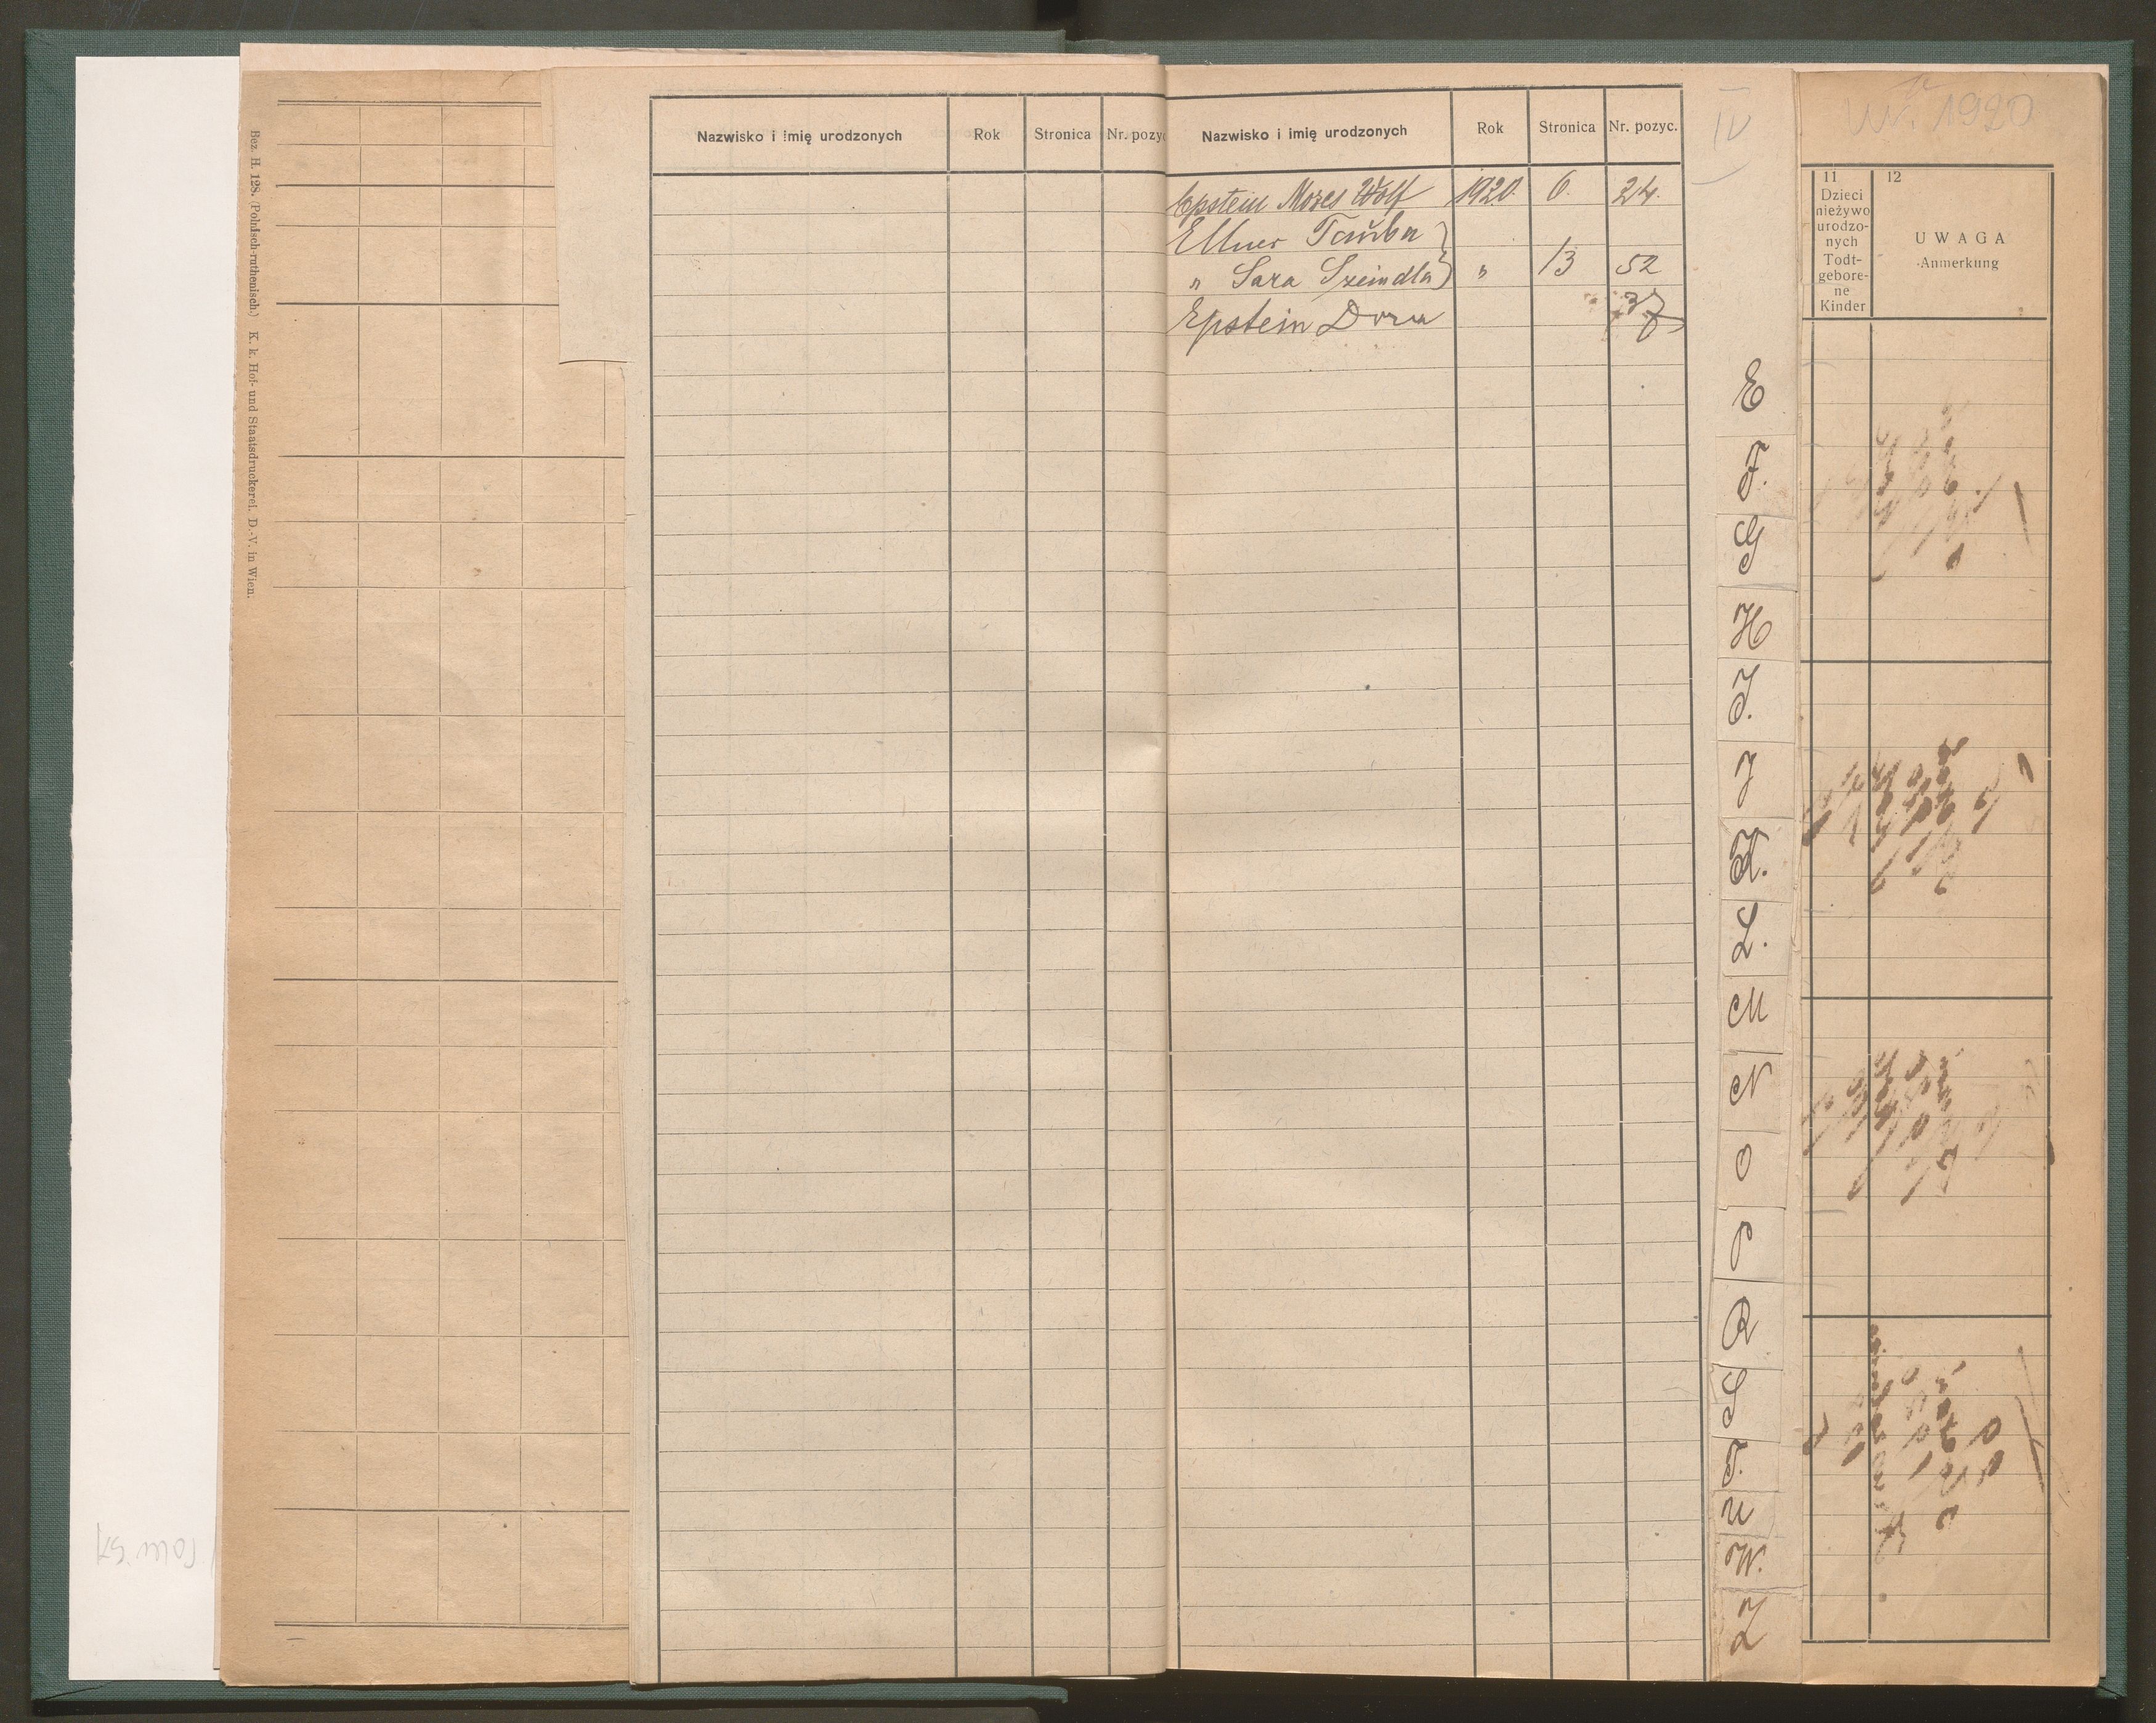 Bez. H. 128. (Polnisch-ruthenisch.) K. k. Hof- und Staatsdruckerei. D.-V. in Wien.
Nazwisko i imię urodzonych Rok Stronica Nr. pozyc
Nazwisko i imię urodzonych Rok Stronica Nr. pozyc.
Epstein Mozes Wolf 1920. 6. 24.
Ellner Tauba
" Sara Szeindla " 13 52
Epstein Dora 37
IV
E
F.
G
H
I.
J
K.
L.
M
N
O
P
R
S
T.
U
W.
Z
1920
11
Dzieci
nieżywo
urodzo-
nych
Todt-
gebore-
ne
Kinder
12
UWAGA
Anmerkung